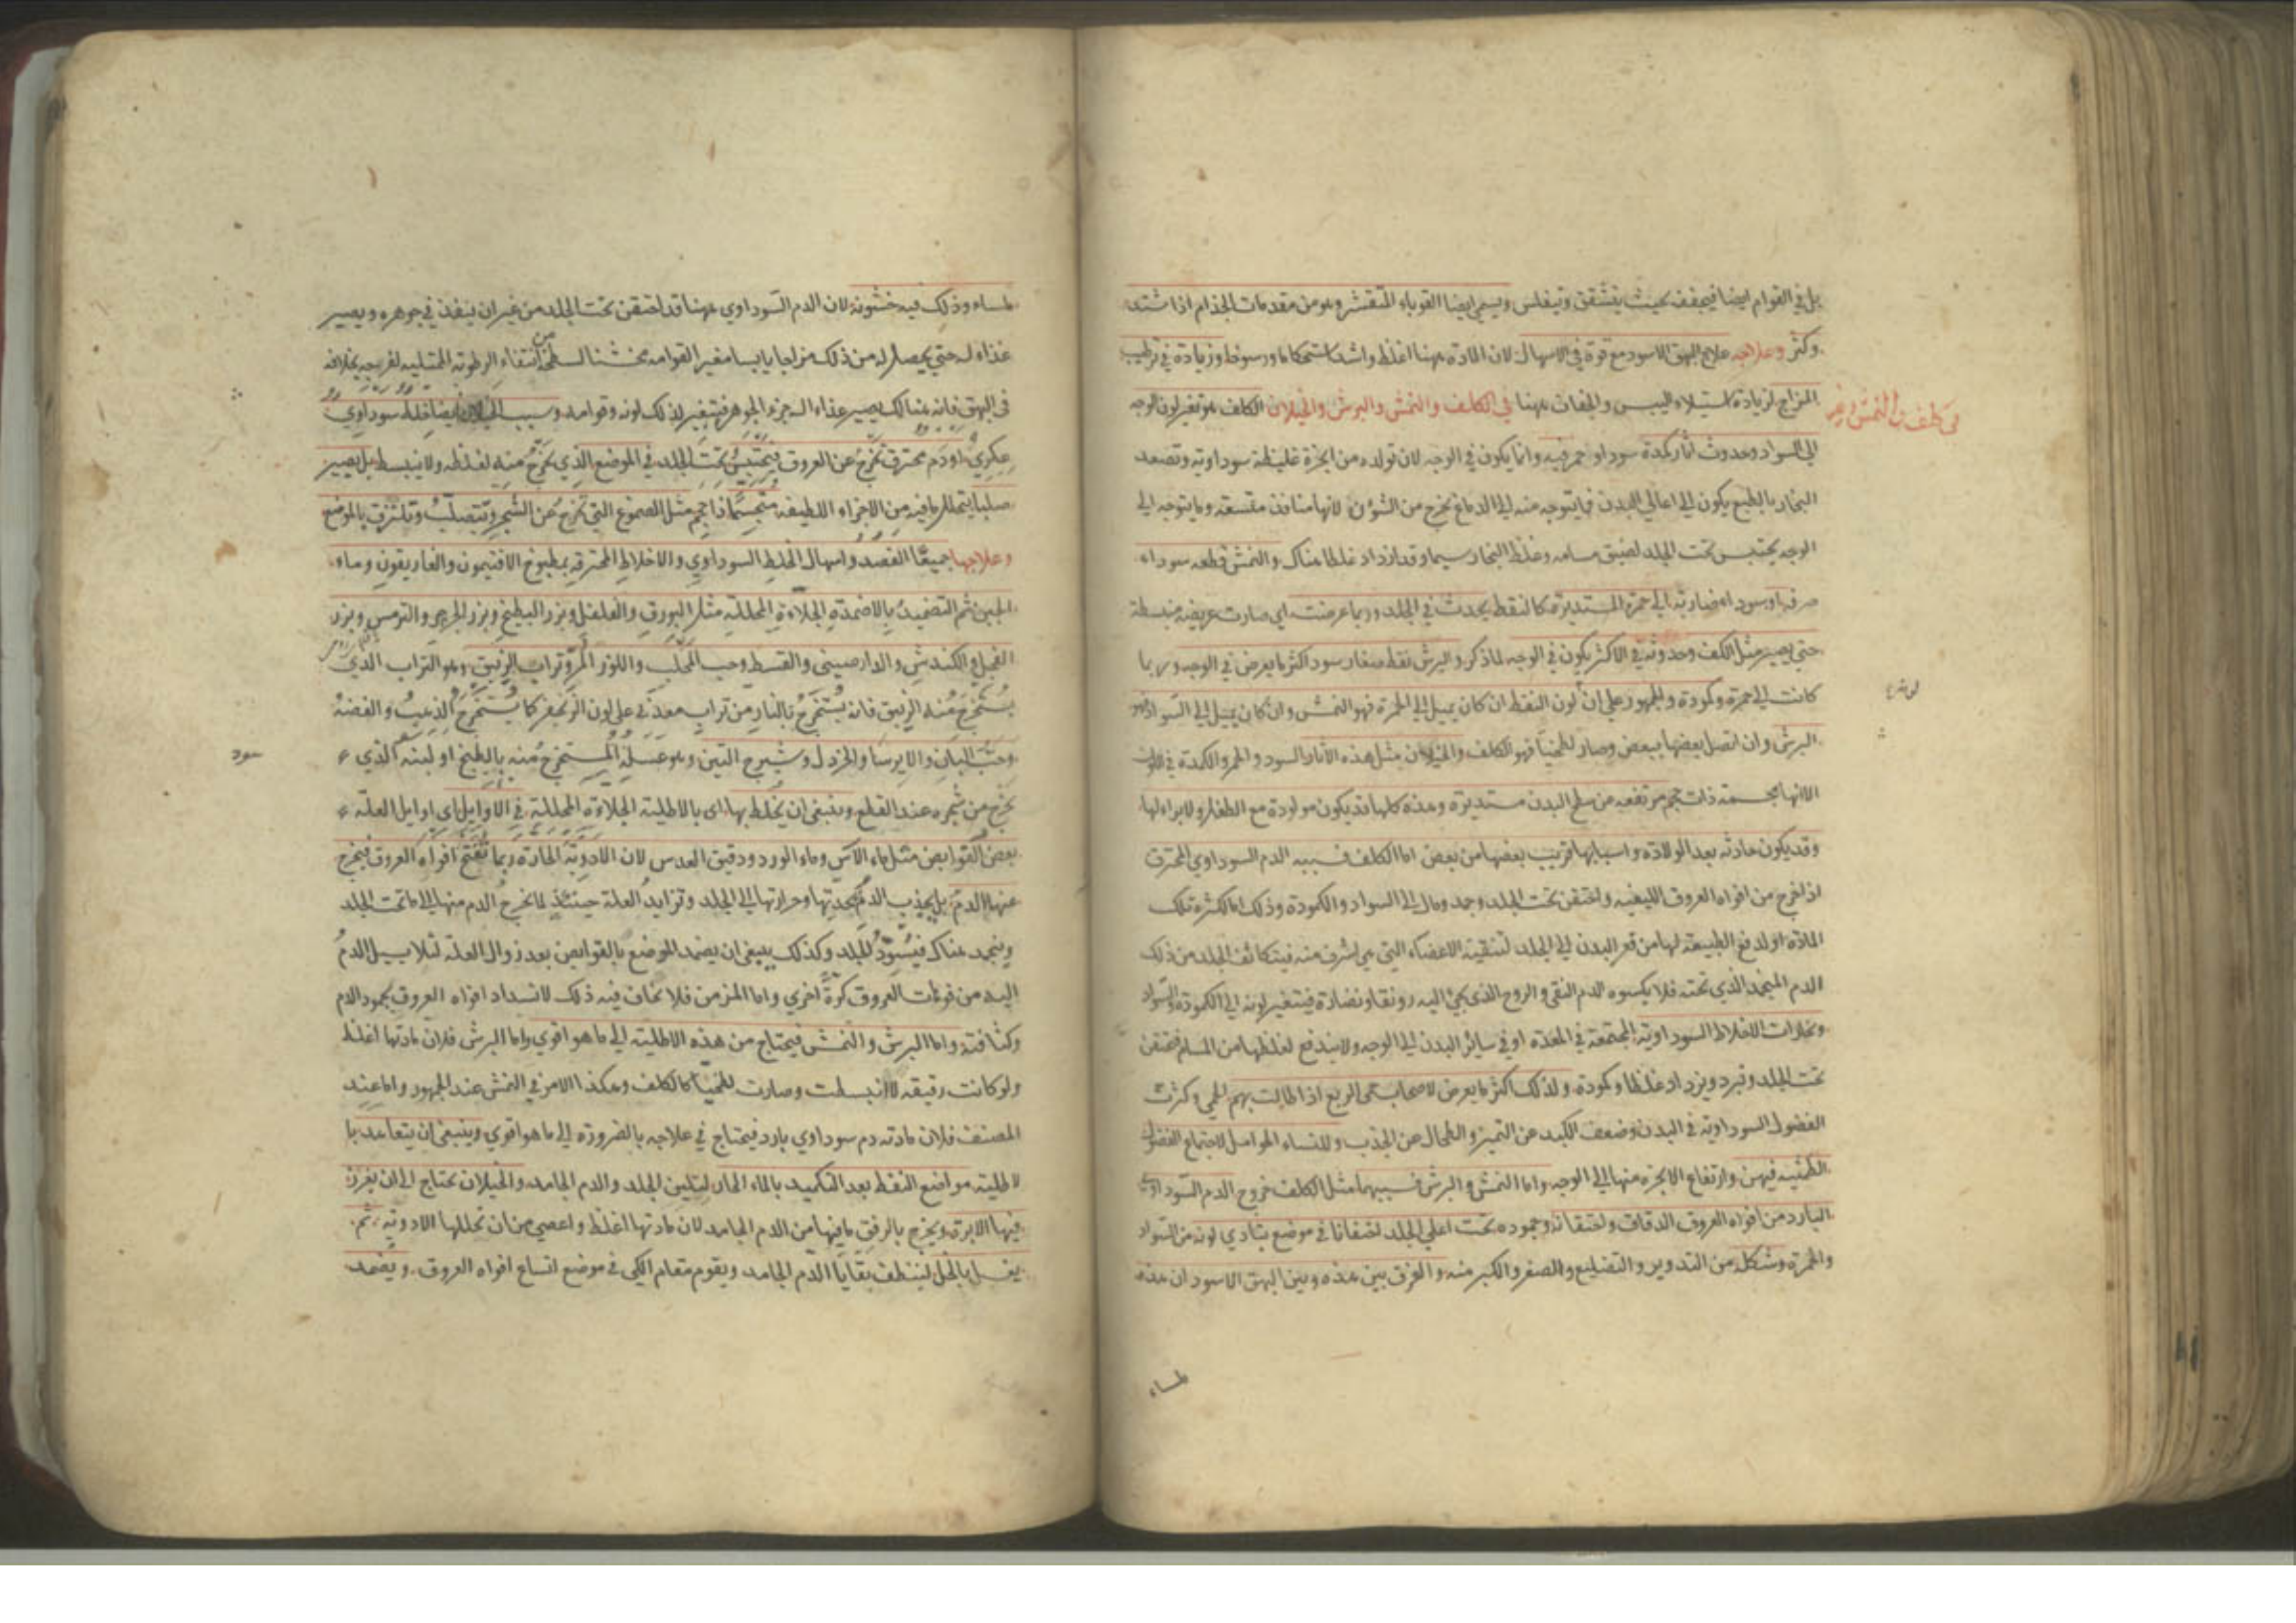 بل في القوام ايضا فيجفف بحيث يتشقق ويتفلس ويسمي ايضا القوباء المتقشر وهو من مقدمات الجذام اذا اشتد
وكثر وعلاجه علاج البهق الاسود مع قوة في الاسهال لان المادة ههنا اغلظ واشد استحكاما ورسوخا وزيادة في ترطيب
المزاج لزيادة استيلاء اليبس والجفاف ههنا في الكلف والنمش والبرش والخيلان الكلف هو تغير لون الوجه
في كلف والنمش وغيره
الي السواد وحدوث اثار كمدة سود او حمر فيه وانما يكون في الوجه لان تولده من ابخرة غليظة سوداوية وتصعد
البخار بالطبع يكون الي اعالي البدن فما يتوجه منه الي الدماغ يخرج من الشؤن لانها منافذ متسعة وما يتوجه الي
الوجه يحتبس تحت الجلد لضيق مسامه وغلظ البخار سيما وقد ازداد غلظا هناك والنمش قطعه سوداء
صرفه او سوداء ضاربة الي حمرة المستديرة كالنقط يحدث في الجلد وربما عرضت اي صارت عريضة منبسطة
حتي يصير مثل الكلف وحدوثه في الاكثر يكون في الوجه لما ذكر والبرش نقط صغار سود اكثر ما يعرض في الوجه وربما
كانت الي حمرة وكمودة والجمهور علي ان لون النقط ان كان يميل الي الحمرة فهو النمش وان كان يميل الي السواد فهو
البرش وان اتصل بعضها ببعض وصار لطخيا فهو الكلف والخيلان مثل هذه الاثار السود والحمر والكمدة في اللون
الا انها مجسمة ذات حجم مرتفعه من سطح البدن مستديرة وهذه كلها قد يكون مولودة مع الطفل ولا برء لها
وقد يكون حادثه بعد الولادة واسبابها قريب بعضها من بعض اما الكلف فسببه الدم السوداوي المحترق
اذا خرج من افواه العروق الليفيه واحتقن تحت الجلد وجمد ومال الي السواد والكمودة وذلك اما لكثرة تلك
المادة او لدفع الطبيعة لها من قعر البدن الي الجلد لتنقية الاعضاء التي هي اشرف منه فيتكاثف الجلد من ذلك
الدم المنجمد الذي تحته فلا يكسوه الدم النقي والروح الذي يجئ اليه رونقا ونضارة فيتغير لونه الي الكمودة والسواد
وبخارات الاخلاط السوداوية المجتمعة في المعدة او في سائر البدن الي الوجه ولا يندفع لغلظها من المسام فتحتقن
تحت الجلد وتبرد ويزداد غلظا وكمودة ولذلك اكثر ما يعرض لاصحاب حمي الربع اذا طالت بهم الحمي وكثرت
الفضول السوداوية في البدن وضعف الكبد عن التميز والطحال عن الجذب وللنساء الحوامل لاجتماع الفضول
الطمثية فيهن وارتفاع الابخرة منها الي الوجه واما النمش والبرش فسببهما مثل الكلف خروج الدم السوداوي
البارد من افواه العروق الدقاق واحتقانه وجموده تحت اعلي الجلد احتقانا في موضع يتادي لونه من السواد
والحمرة وشكله من التدوير والتضليع والصغر والكبر منه والفرق بين هذه وبين البهق الاسود ان هذه
لمساء
لمساء وذلك فيه خشونة لان الدم السوداوي ههنا قد احتقن تحت الجلد من غير ان ينفذ في جوهره ويصير
غذاء له حتي يحصل له من ذلك مزاجا يابسا مغير القوامه مخشنا لسطحه انتفاء الرطوبة المتلبيه لغريجه بخلافه
في البهق فانه هنالك يصير غذاء الجزء الجوهر فيتغير لذلك لونه وقوامه وسبب الخيلان ايضا خلط سوداوي
عكري او دم محترق تخرج عن العروق فيحتبس تحت الجلد في الموضع الذي يخرج منه لغلظه ولا ينبسط بل يصير
صلبا يتحلل ما فيه من الاجزاء اللطيفه متجسما ذا حجم مثل الصموغ التي تخرج عن الشجر وتتصلب وتلتزق بالموضع
وعلاجها جميعا الفصد واسهال الخلط السوداوي والاخلاط المحترقه بمطبوخ الافتيمون والغاريقون وماء
الجبن ثم التضميد بالاضمدة الجلاءة المحللة مثل البورق والفلفل وبزر البطيخ وبزر الجرجير والترمس وبزر
الفجل والكندش والدارصيني والقسط وحب المحلب واللوز المر وتراب الزيبق وهو التراب الذي
يستخرج منه الزيبق فانه يستخرج بالنار من تراب معدني علي لون الزنجفر كما يستخرج الذهب والفضة
وحب البان والايرسا والخردل وشيرج التين وهو عسله المستخرج منه بالطبخ او لبنه الذي
سود
يخرج من شجره عند القطع وينبغي ان يخلط بها اي بالاطلية الجلاءة المحللة في الاوايل اي اوايل العلة
بعض القوابض مثل ماء الآس وماء الورد ودقيق العدس لان الادوية الحارة ربما تفتح افواه العروق فيخرج
عنها الدم بل يجذب الدم بحدتها وحرارتها الي الجلد وتزايد العلة حينئذ لما يخرج الدم منها الي ما تحت الجلد
وينجمد هناك فيسود الجلد وكذلك ينبغي ان يضمد الموضع بالقوابض بعد زوال العلة لئلا يسيل الدم
اليه من فوهات العروق كرة اخري واما المزمن فلا يخاف فيه ذلك لانسداد افواه العروق بجمود الدم
وكثافته واما البرش والنمش فيحتاج من هذه الاطلية الي ما هو اقوي واما البرش فلان مادتها اغلظ
ولو كانت رقيقه لانبسطت وصارت لطخيا كالكلف وهكذا الامر في النمش عند الجمهور واما عند
المصنف فلان مادته دم سوداوي بارد فيحتاج في علاجه بالضرورة الي ما هو اقوي وينبغي ان يتعاهد با
لاطلية مواضع النقط بعد التكميد بالماء الحار لتليين الجلد والدم الجامد والخيلان تحتاج الي ان يغرز
فيها الابرة ويخرج بالرفق ما فيها من الدم الجامد لان مادتها اغلظ واعصي من ان تحللها الادوية ثم
يغسل بالخل لينظف بقايا الدم الجامد ويقوم مقام الكي في موضع اتساع افواه العروق ويضمد